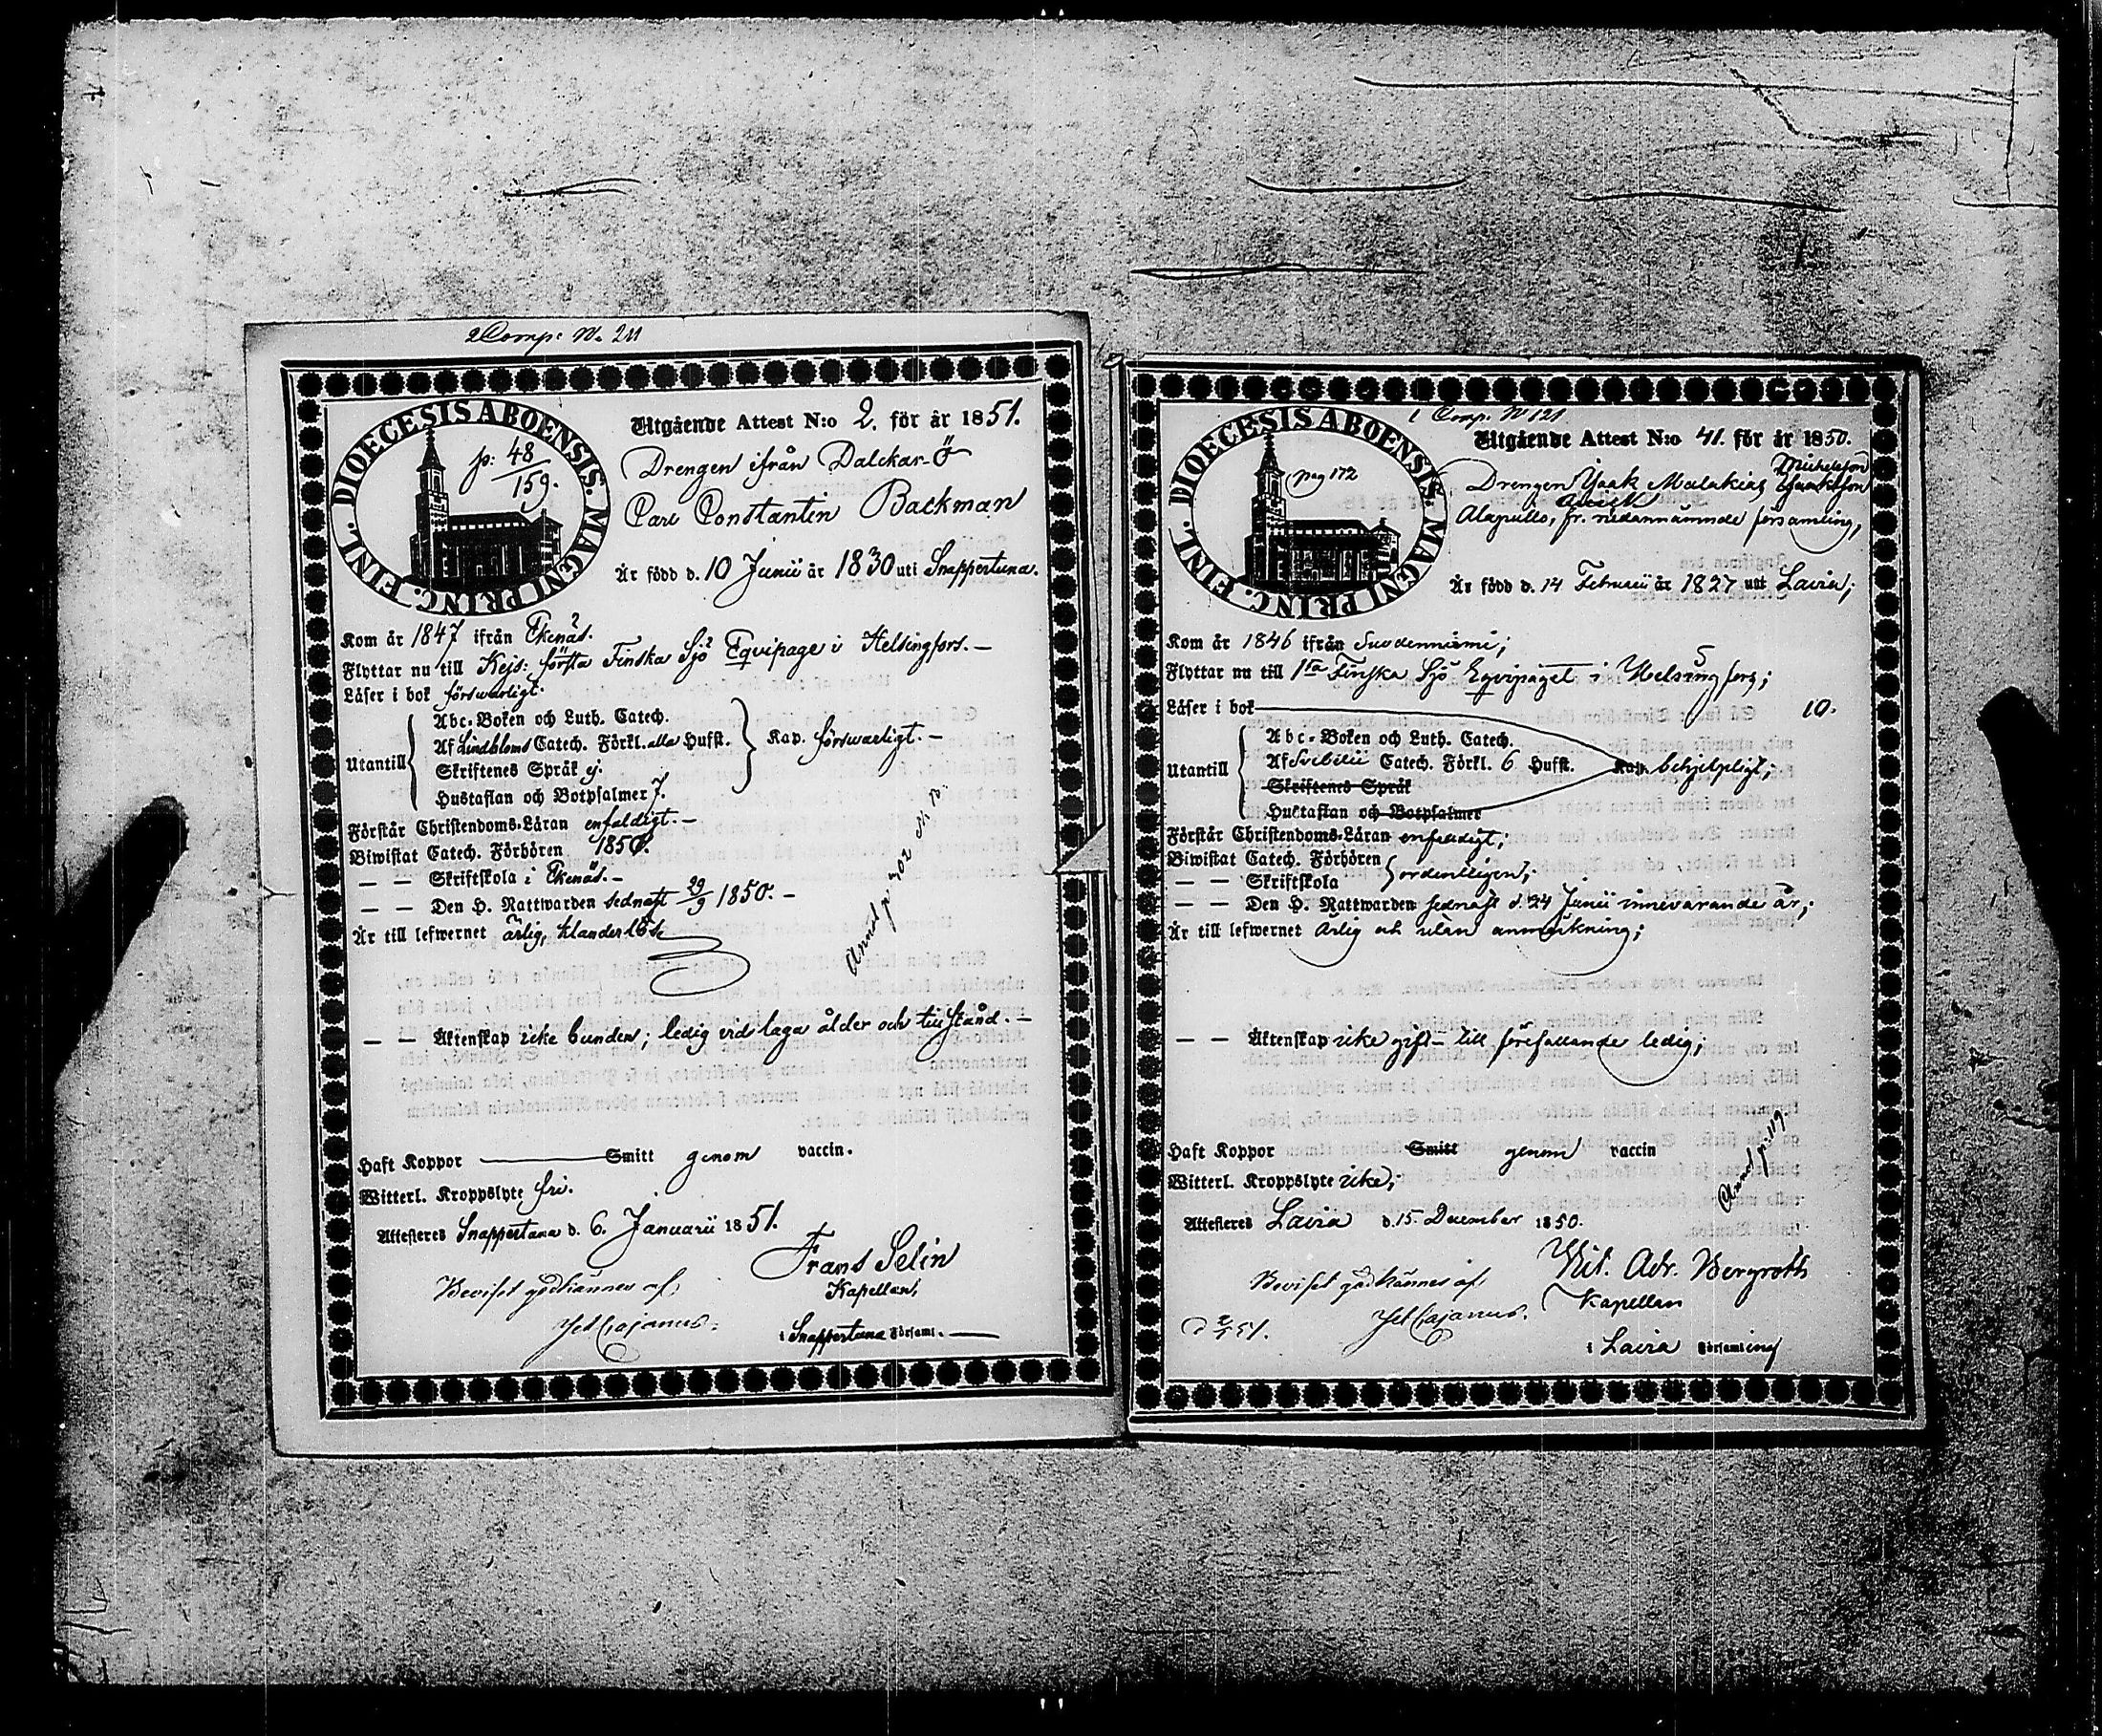 2 Comp: No 211
DIOECESIS ABOENSIS. MAGNI PRINC. FINL.
p: 48
159.
Utgående Attest N:o 2. för år 1851.
Drengen ifrån Dalckar-Ö
Carl Constantin Backman
Är född d. 10 Junii år 1830 uti Snappertuna.
Kom år 1847 ifrån Ekenäs.
Flyttar nu till Kejs: första Finska Sjö Equipage i Helsingfors. —
Läser i bok försvarligt.
Utantill
Abc-Boken och Luth. Catech.
Af Lindbloms Catech. Förkl. alla Hufst.
Skriftenes Språk ej.
Hustaflan och Botpsalmer 7.
Kap. försvarligt. —
Förstår Christendoms-Läran enfaldigt. —
Biwistat Catech. Förhören 1850.
— — Skriftskola i Ekenäs. —
— — Den H. Nattwarden sednast 29/9 1850. —
Är till lefwernet ärlig, klanderlös
Annot p. 302
— — Äktenskap icke bunden; ledig vid laga ålder och tillstånd. —
Haft Koppor — Smitt genom vaccin.
Witterl. Kroppslyte fri.
Attesteres Snappertuna d. 6. Januarii 1851.
Frans Selin
Kapellan,
i Snappertuna Församl. —
Beviset godkännes af,
Cajanus.
1 Comp. No 121
DIOECESIS ABOENSIS. MAGNI PRINC. FINL.
pag 172
Utgående Attest N:o 41. för år 1850.
Michelsson
Drengen Isaak Malakias Isaaksson
Alapullo, fr. nedannämnde församling,
Är född d. 14 Februarii år 1827 uti Lavia;
Kom år 1846 ifrån Suodenniemi;
Flyttar nu till 1sta Finska Sjö Equipaget i Helsingfors;
Läser i bok
10.
Utantill
Abc-Boken och Luth. Catech.
Af Svebilii Catech. Förkl. 6 Hufst.
Skriftenes Språk
Hustaflan och Botpsalmer
Kap. behjelpligt;
Förstår Christendoms-Läran enfaldigt;
Biwistat Catech. Förhören
— — Skriftskola
ordentligen;
— — Den H. Nattwarden sednast d. 24 Junii innevarande år;
Är till lefwernet ärlig och utan anmärkning;
— — Äktenskap icke gift — till förefallande ledig;
Haft Koppor Smitt genom vaccin
Witterl. Kroppslyte icke;
Annot p: 119
Attesteres Lavia d. 15. December 1850.
Vict. Adr. Bergroth
Kapellan
i Lavia Församling
Beviset godkännes af,
Cajanus.